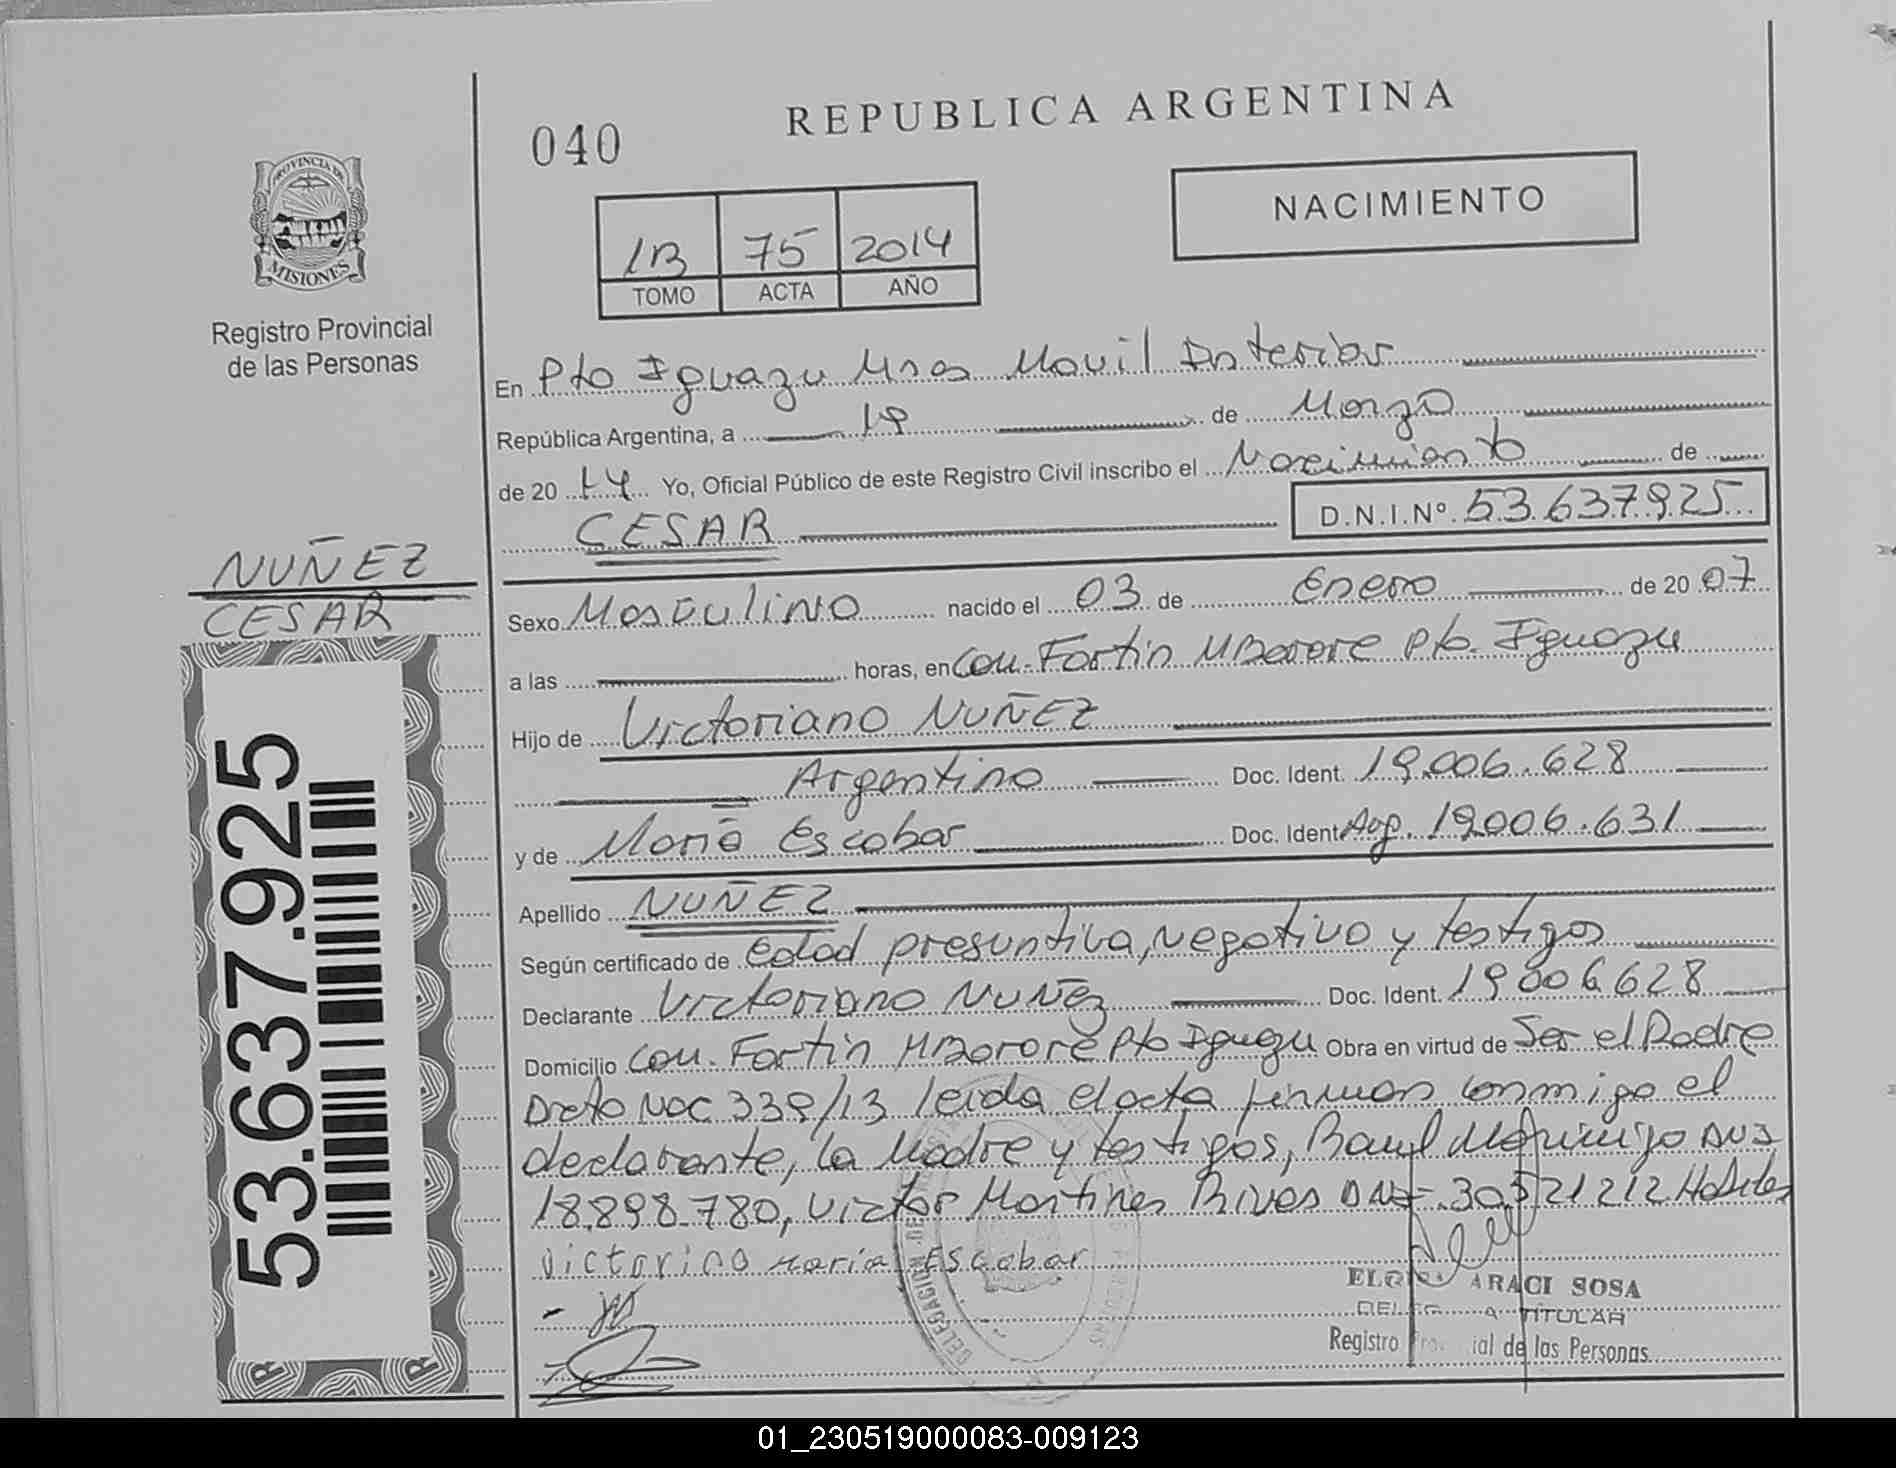 040
REPUBLICA ARGENTINA
NACIMIENTO
1B 75 2014
TOMO ACTA AÑO
PROVINCIA DE
MISIONES
Registro Provincial
de las Personas
En Pto Iguazu Mnes Movil Interior
República Argentina, a 19 de Marzo
de 20 14 Yo, Oficial Público de este Registro Civil inscribo el Nacimiento de
CESAR D.N.I.Nº 53.637.925
NUÑEZ
CESAR
53.637.925
Sexo Masculino nacido el 03 de Enero de 20 07
a las horas, en Com. Fortin MBorore Pto. Iguazu
Hijo de Victoriano NUÑEZ
Argentino Doc. Ident. 19.006.628
y de Maria Escobar Doc. Ident. Arg. 19.006.631
Apellido NUÑEZ
Según certificado de edad presuntiva, negativo y testigos
Declarante Victoriano Nuñez Doc. Ident. 19.006.628
Domicilio Com. Fortin MBororé Pto Iguazu Obra en virtud de Ser el Padre
Dcto Nac 339/13 leida el acta firman conmigo el
declarante, la Madre y testigos, Raul DNI
18.898.780, Victor Martines Rivas DNI 30.521212
Victorino Maria Escobar
ARACI SOSA
TITULAR
Registro Provincial de las Personas
01_230519000083-009123